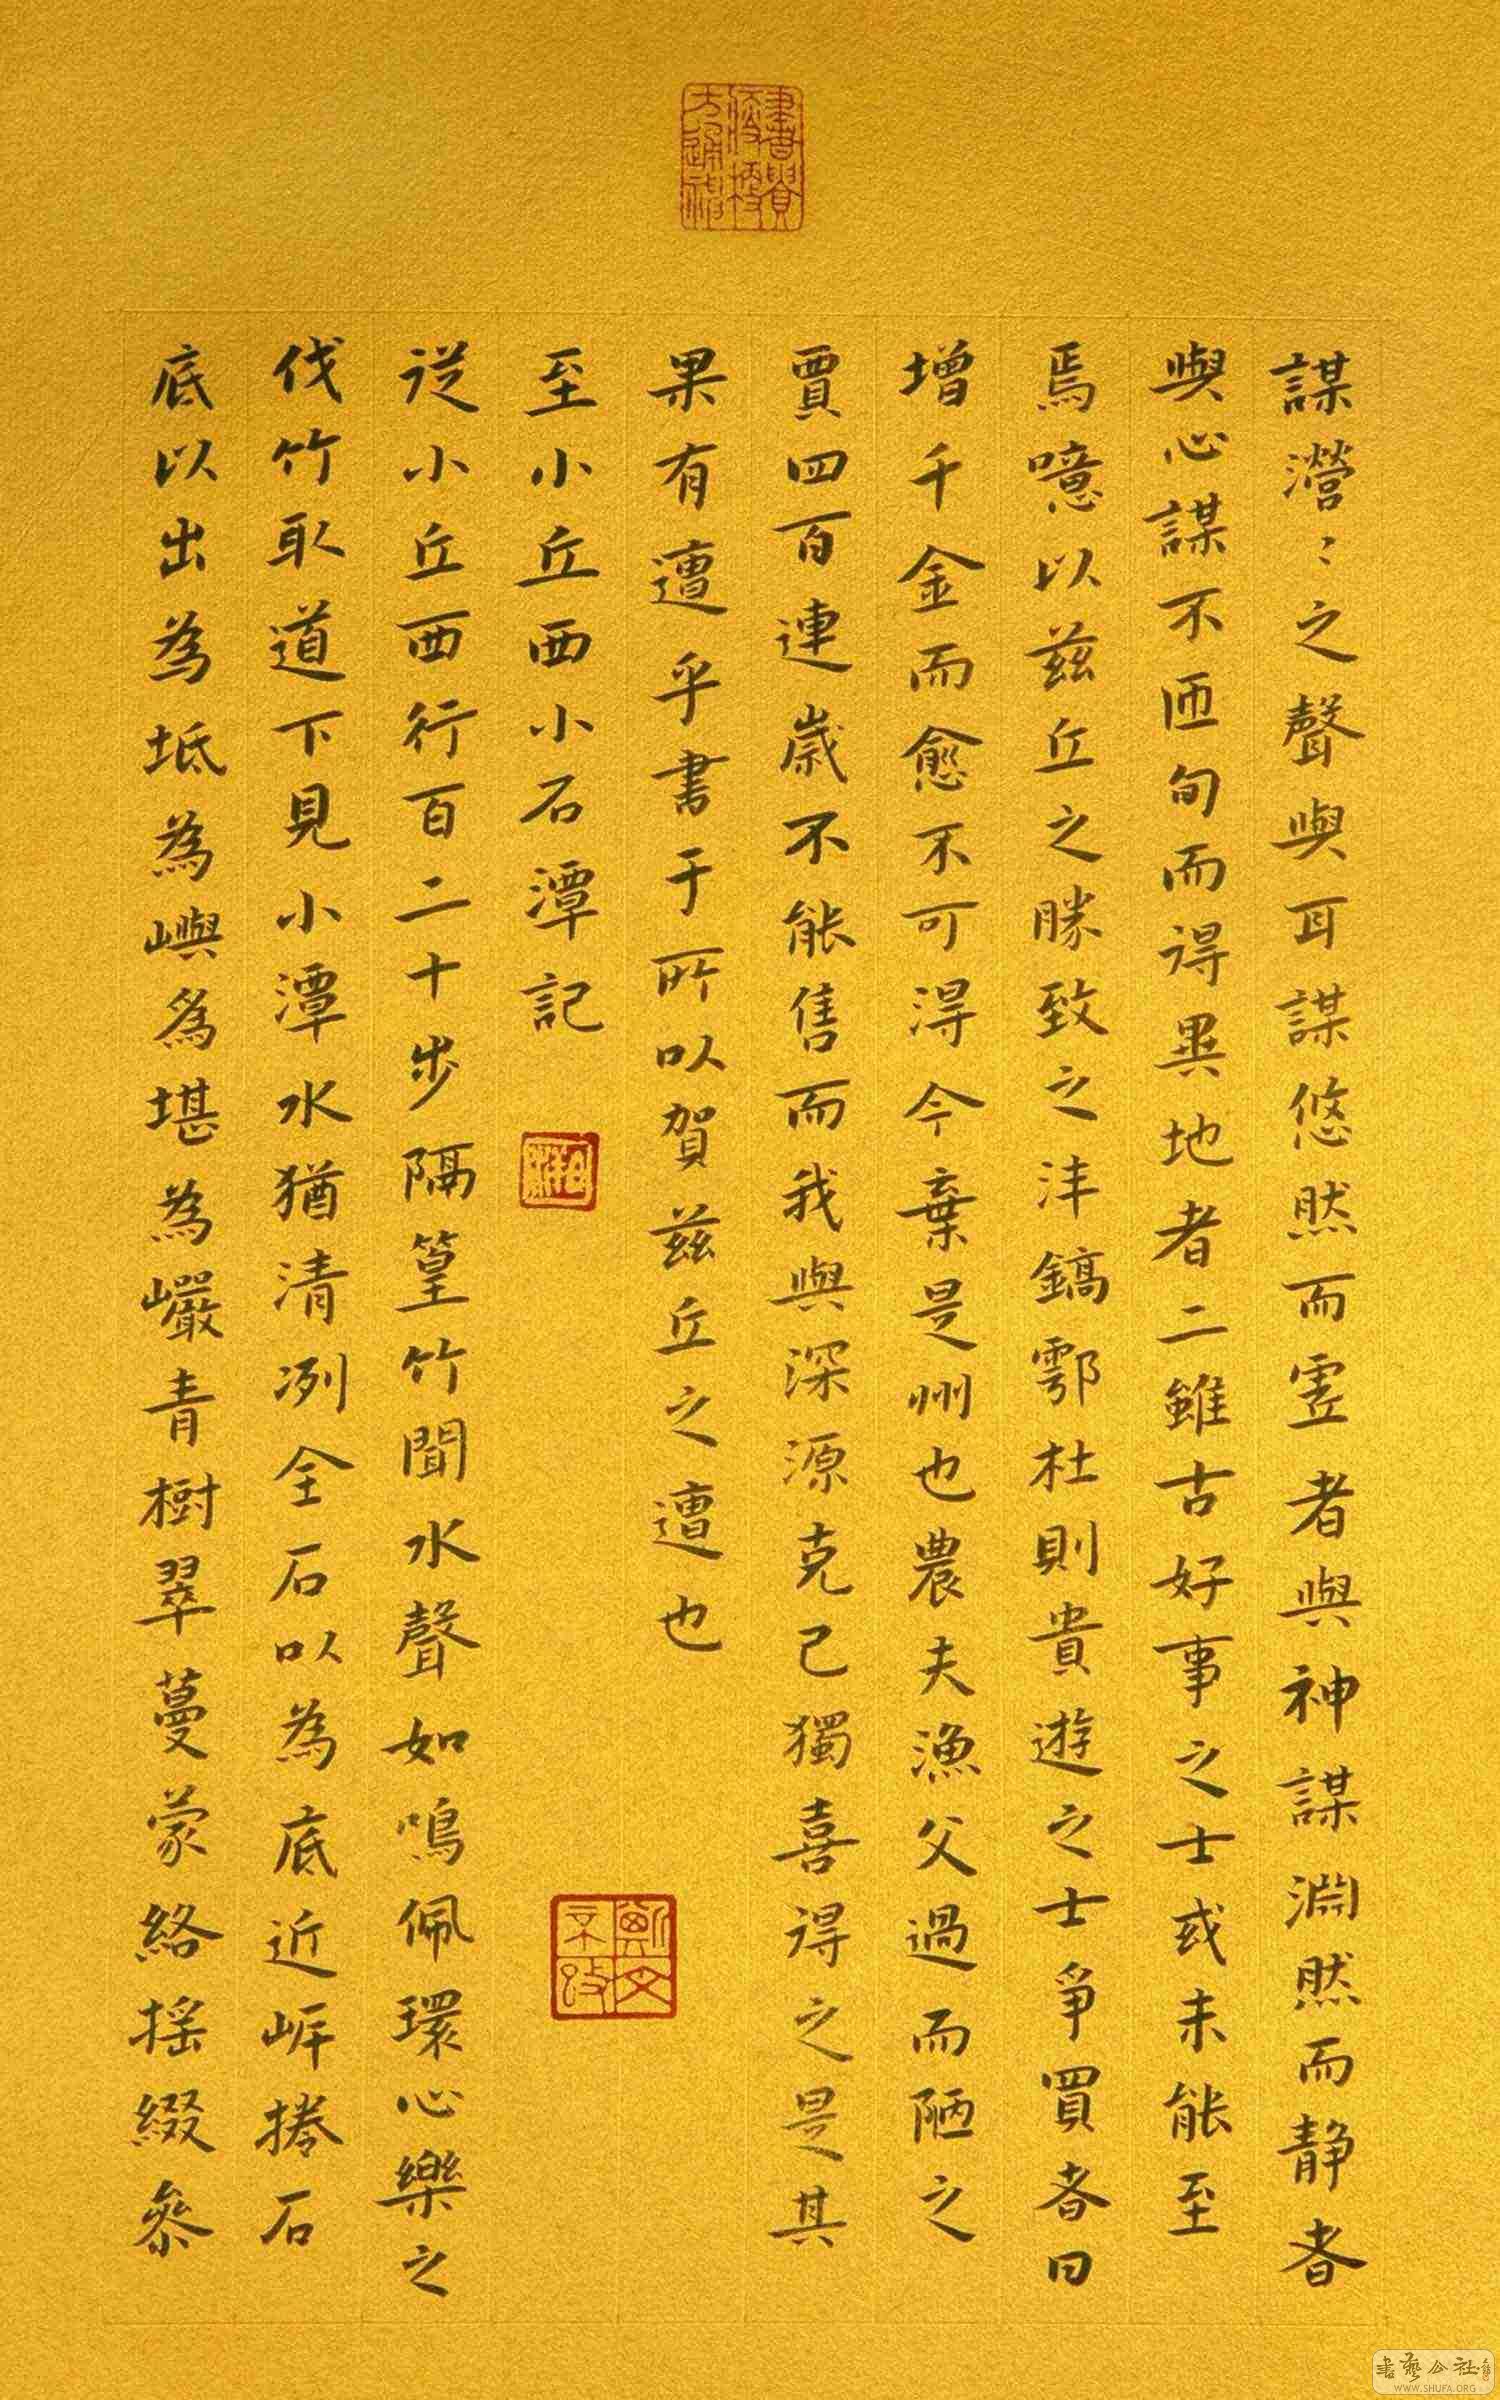 謀瀯〻之聲與耳謀悠然而虛者與神謀淵然而静者
與心謀不匝旬而得異地者二雖古好事之士或未能至
焉噫以兹丘之勝致之沣鎬鄠杜則貴遊之士爭買者日
增千金而愈不可得今棄是州也農夫漁父過而陋之
賈四百連歳不能售而我與深源克己獨喜得之是其
果有遭乎書于所以賀兹丘之遭也
至小丘西小石潭記
從小丘西行百二十步隔篁竹聞水聲如鳴佩環心樂之
伐竹取道下見小潭水猶清冽全石以為底近岸捲石
底以出為坻為嶼為堪為巖青樹翠蔓蒙絡摇綴参
書藝公社
WWW.SHUFA.ORG